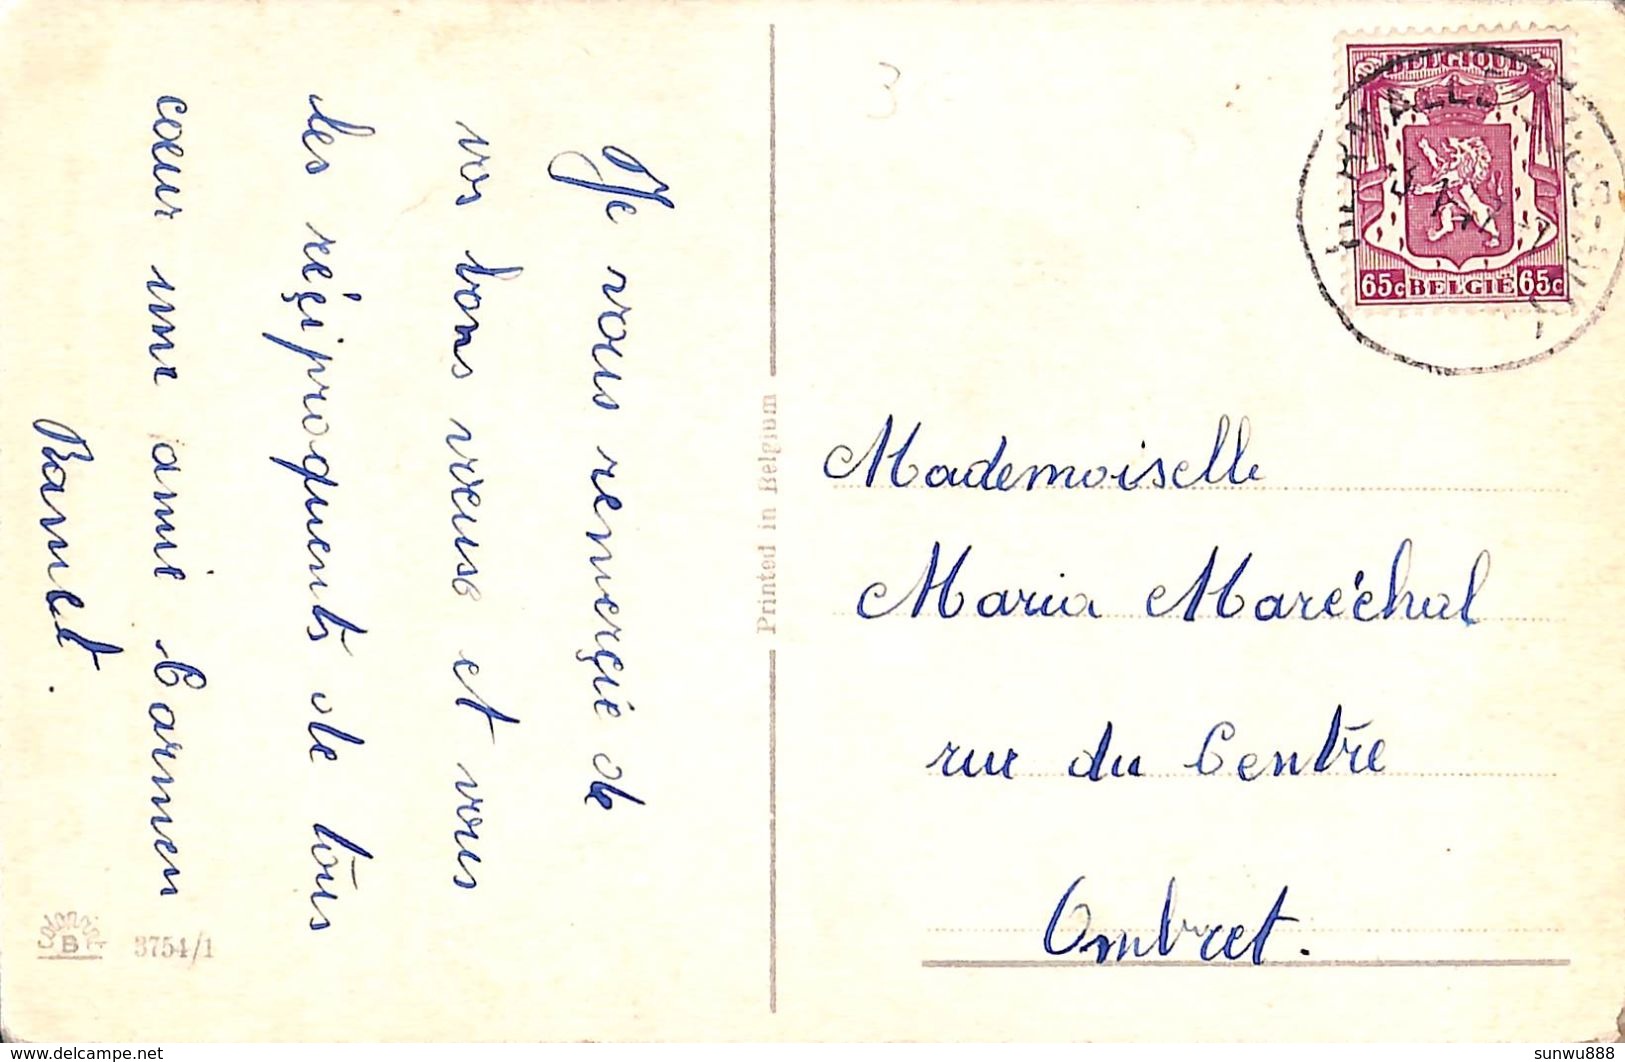 Je vous renerçie de
vos bons vreuse et vous
les réçiproquents de tous
cœur une amie Carmen
Ramet.
3754/1
B
Printed in Belgium
BELGIQUE
65c BELGIE 65c
HERMALLE
Mademoiselle
Maria Maréchal
rue du Centre
Ombret.
www.delcampe.net
sunwu888